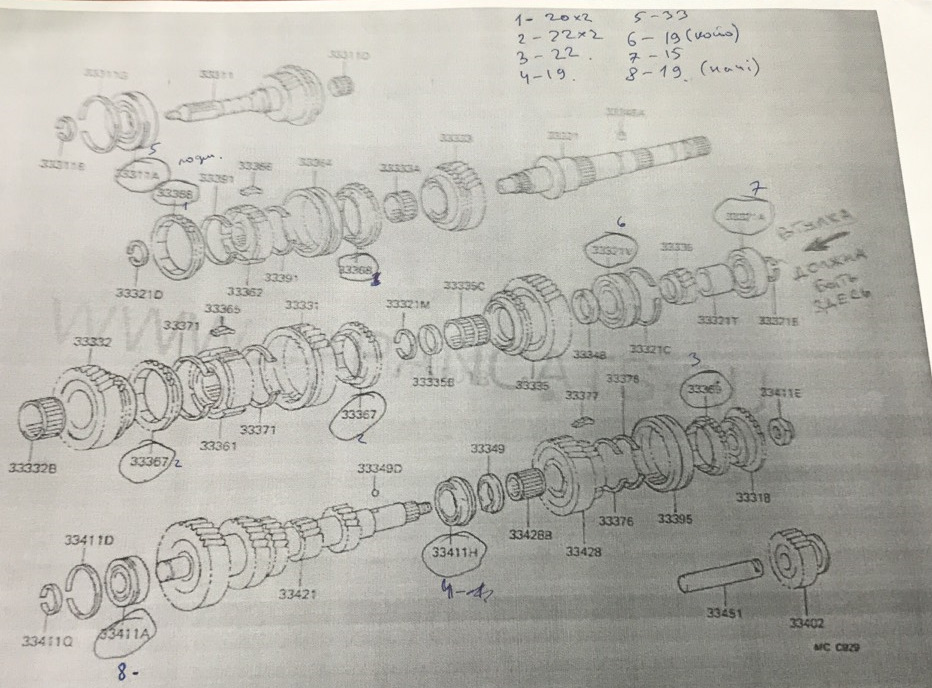 1-20x2 5-33
2-22x2 6-19 (койо)
3-22. 7-15
4-19. 8-19. (начі)
33311G 33311 33311D
33311E 33311A 5
33368 1 33391 33366 33364 33333A 33333 33321 33345A
33321D 33362 33391 33368 1
6 33321V 33336 7 33321A
ВТУЛКА
ДОЛЖНА
БЫТЬ
ЗДЕСЬ
33332 33371 33365 33331 33321M 33335C
33348 33321C 33321T 33321E
33335B 33335
33332B 33367 2 33361 33371 33367 2
33377 33376 3 33369 33411E
33349D 33349
33428B 33428 33376 33395 33318
33411D 33411H
4-
33421
33411Q 33411A
33451 33402
8-
MC C929